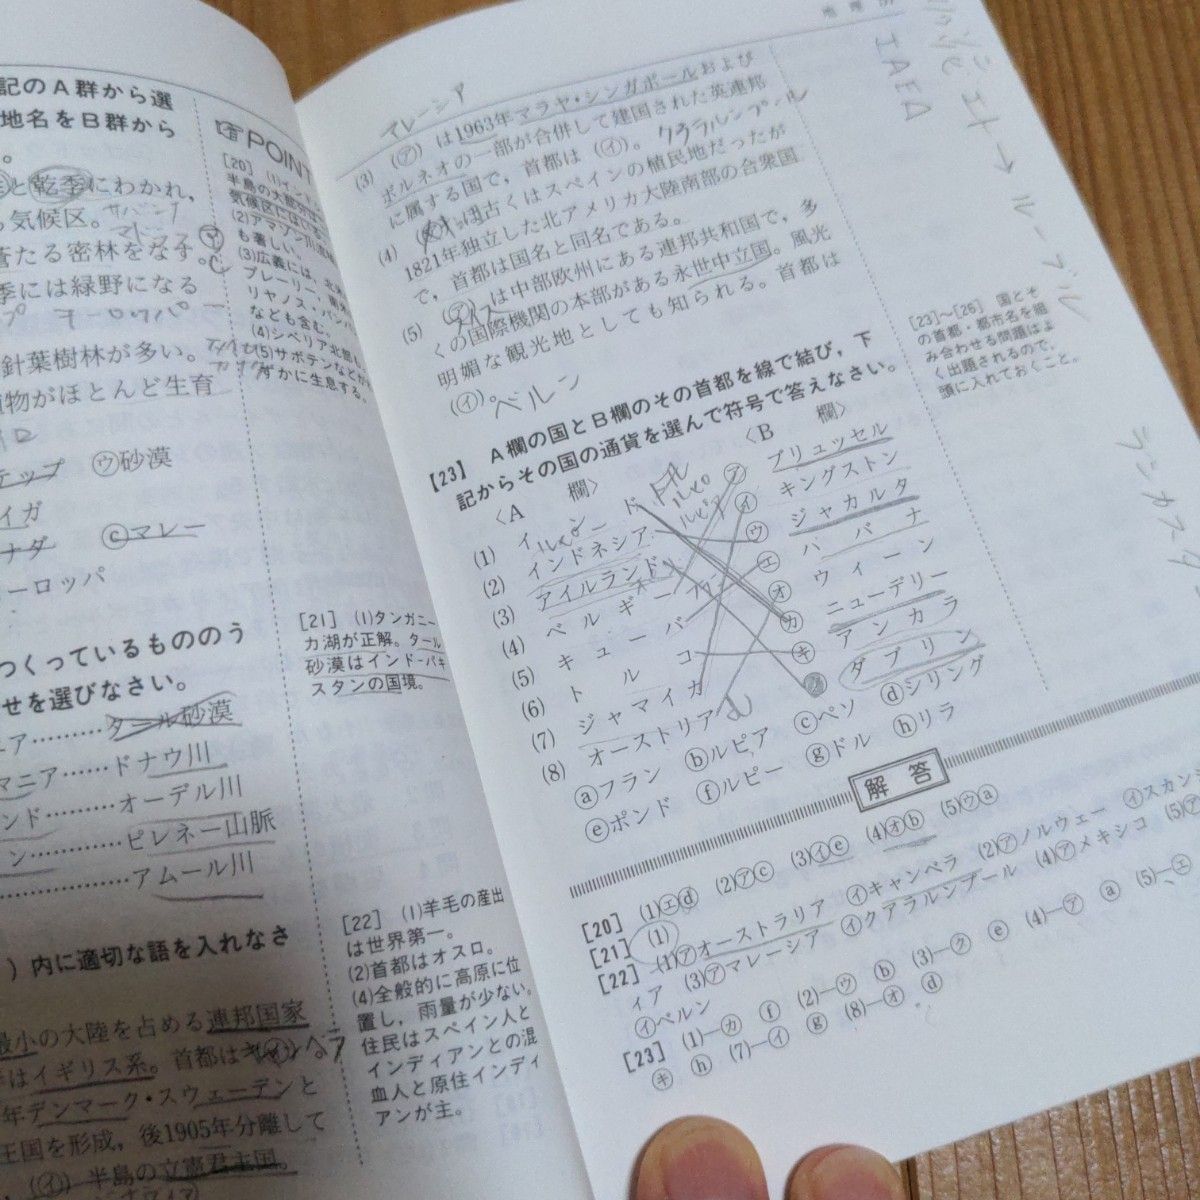 記のA群から選
地名をB群から
。
と乾季にわかれ,
気候区。
蒼たる密林をなす。
季には緑野になる
ヨーロッパ
針葉樹林が多い。
植物がほとんど生育
テップ ㋒砂漠
イガ
ナダ ⓒマレー
ーロッパ
つくっているもののう
せを選びなさい。
ニア………タール砂漠
マニア……ドナウ川
ンド………オーデル川
ン…………ピレネー山脈
………………アムール川
)内に適切な語を入れなさ
最小の大陸を占める連邦国家
はイギリス系。首都は
年デンマーク・スウェーデンと
王国を形成,後1905年分離して
(㋑)半島の立憲君主国。
POINT
[20] (1)イン
半島の大部分は
気候区には
(2)アマゾン川流域
も著しい。
(3)広義には,北米
プレーリー,南米
リヤノス,パンパ
なども含む。
(4)シベリア北部
(5)サボテンなどが
ずかに生息する。
[21] (1)タンガニー
カ湖が正解。タール
砂漠はインド-パキ
スタンの国境。
[22] (1)羊毛の産出
は世界第一。
(2)首都はオスロ。
(4)全般的に高原に位
置し,雨量が少ない。
住民はスペイン人と
インディアンとの混
血人と原住インディ
アンが主。
地理
マレーシア
(3) (㋐)は1963年マラヤ・シンガポールおよび
ボルネオの一部が合併して建国された英連邦
に属する国で,首都は(㋑)。 クアラルンプール
(4) (㋐)は古くはスペインの植民地だったが
1821年独立した北アメリカ大陸南部の合衆国
で,首都は国名と同名である。
(5) (㋐)は中部欧州にある連邦共和国で,多
くの国際機関の本部がある永世中立国。風光
明媚な観光地としても知られる。首都は
(㋑)。
ベルン
[23] A欄の国とB欄のその首都を線で結び,下
記からその国の通貨を選んで符号で答えなさい。
〈A 欄〉 〈B 欄〉
(1) インド ㋐ ブリュッセル
(2) インドネシア ㋑ キングストン
(3) アイルランド ㋒ ジャカルタ
(4) ベルギー ㋓ ハバナ
(5) キューバ ㋔ ウィーン
(6) トルコ ㋕ ニューデリー
(7) ジャマイカ ㋖ アンカラ
(8) オーストリア ダブリン
ⓐフラン ⓑルピア ⓒペソ ⓓシリング
ⓔポンド ⓕルピー ⓖドル ⓗリラ
解答
[20] (1)㋓d (2)㋐c (3)㋑e (4)㋔b (5)㋒a
[21] (1)
[22] (1)㋐オーストラリア ㋑キャンベラ (2)㋐ノルウェー ㋑スカンジ
ィア (3)㋐マレーシア ㋑クアラルンプール (4)㋐メキシコ (5)㋐
㋑ベルン
[23] (1)―㋕ f (2)―㋒ b (3)―㋗ e (4)―㋐ a (5)―㋓
㋖ h (7)―㋑ g (8)―㋔ d
[23]~[26] 国とそ
の首都・都市名を組
み合わせる問題はよ
く出題されるので,
頭に入れておくこと。
IAEA
ルーブル